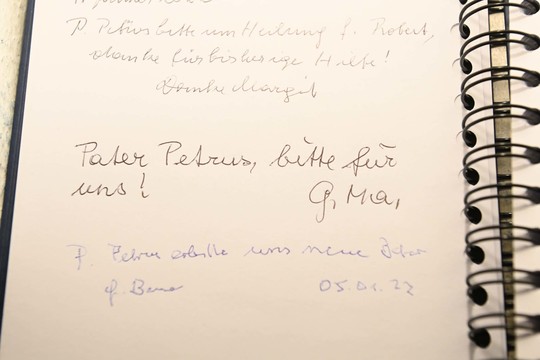 P. Petrus bitte um Heilung f. Robert,
danke für bisherige Hilfe!
Danke Margit
Pater Petrus, bitte für
uns!
G. Ma,
P. Petrus erbitte uns neue
05.01.22